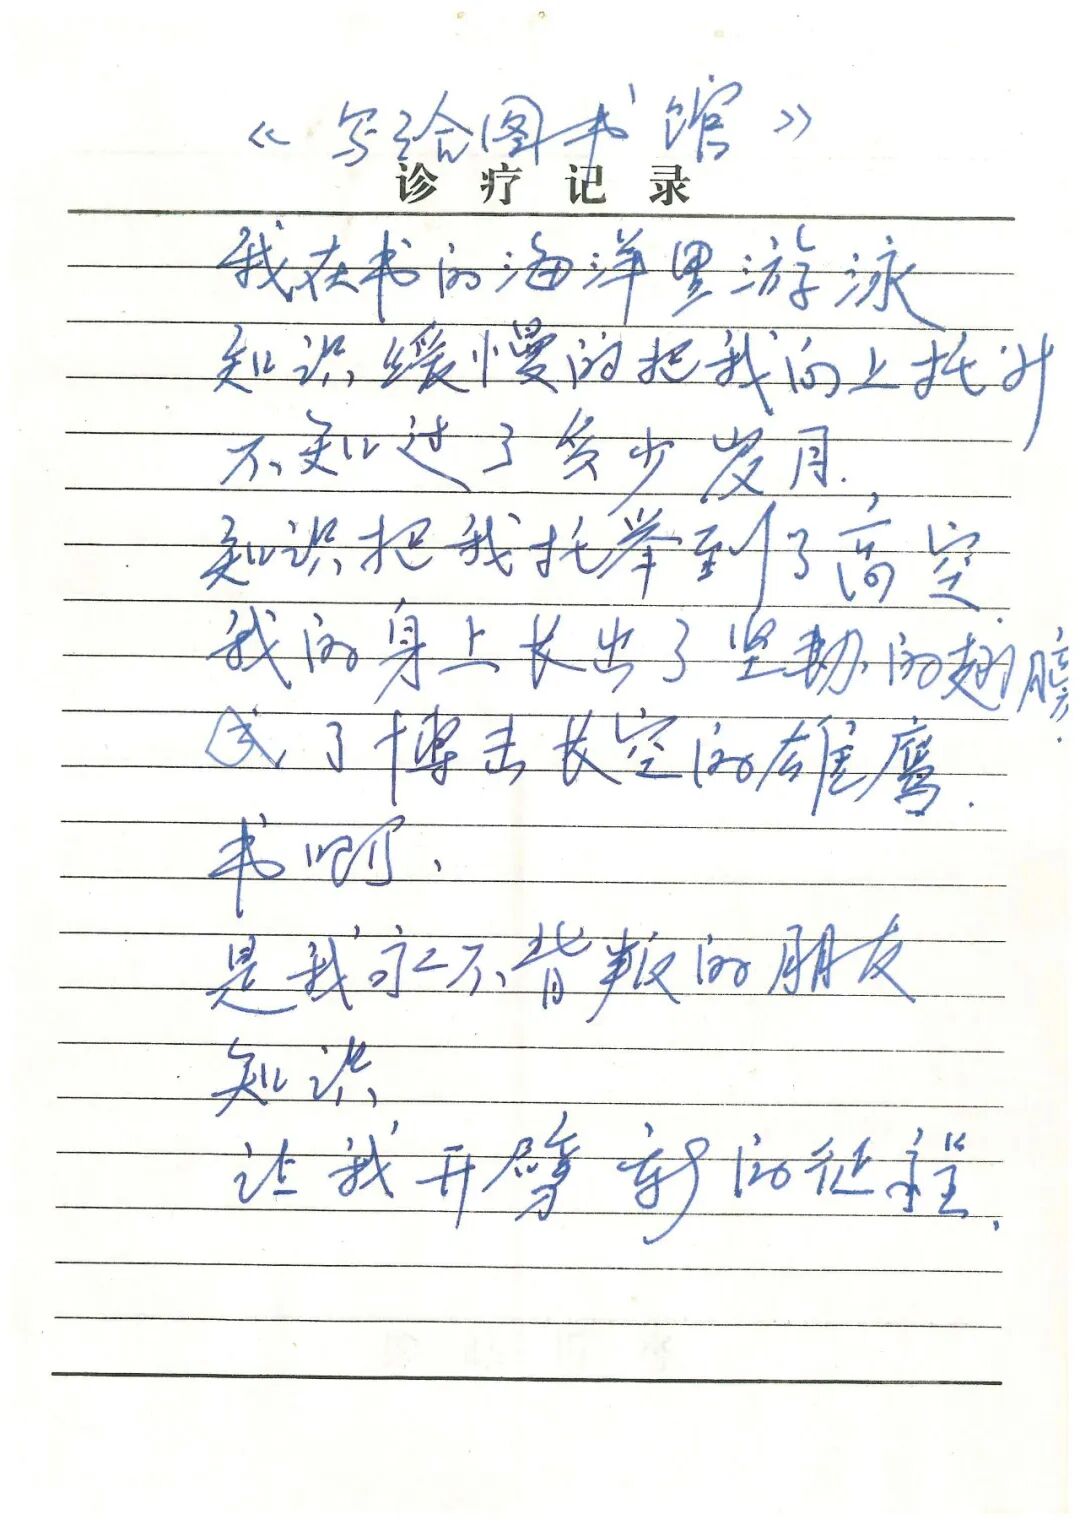 《写给图书馆》
诊疗记录
我在书的海洋里游泳
知识缓慢的把我向上托升
不知过了多少岁月.
知识把我托举到了高空.
我的身上长出了坚韧的翅膀.
成了博击长空的雄鹰.
书啊,
是我永不背叛的朋友
知识
让我开劈新的征程.